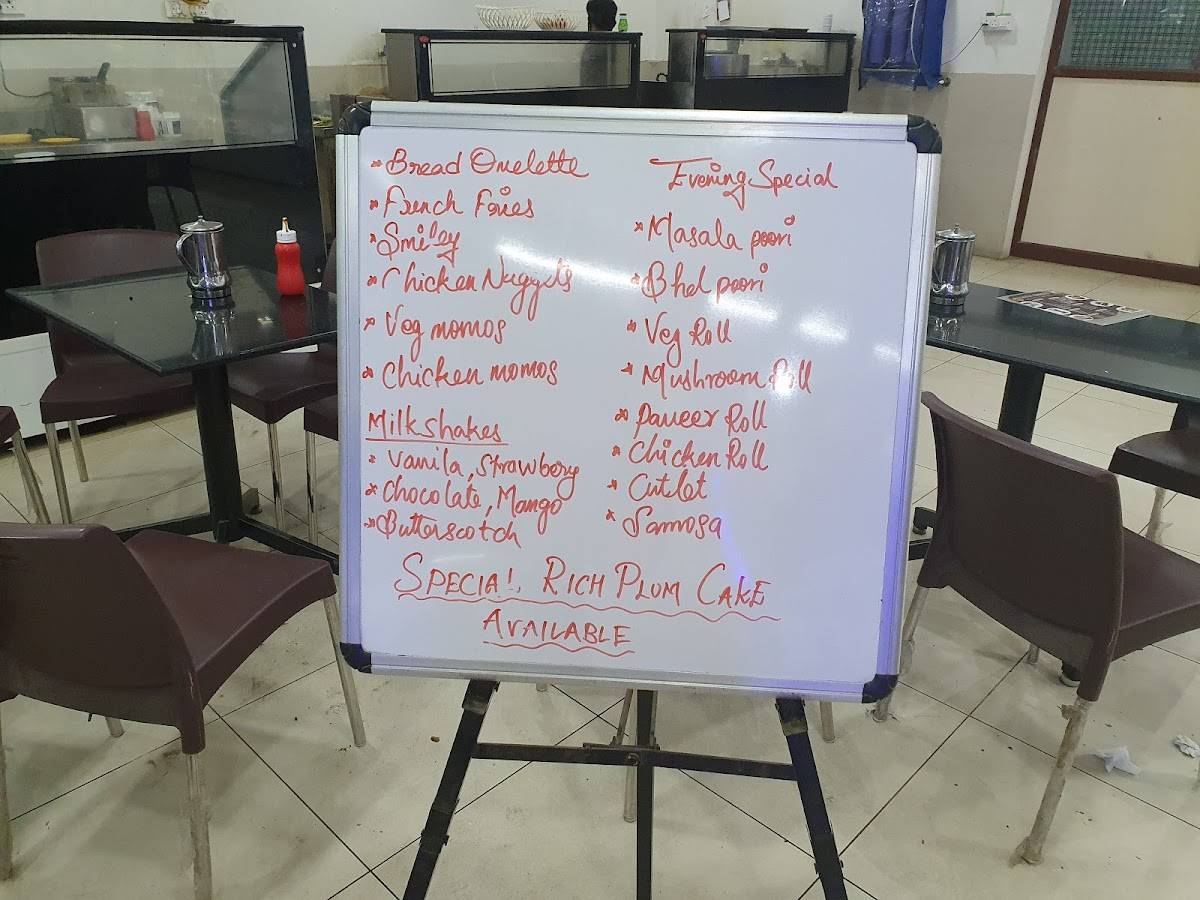 * Bread Omelette
* French Fries
* Smiley
* Chicken Nuggets
* Veg momos
* Chicken momos
Milkshakes
* Vanila, Strawbery
* Chocolate, Mango
* Butterscotch
Evening Special
* Masala poori
* Bhel poori
* Veg Roll
* Mushroom Roll
* Paneer Roll
* Chicken Roll
* Cutlet
* Samosa
SPECIAL RICH PLUM CAKE
AVAILABLE